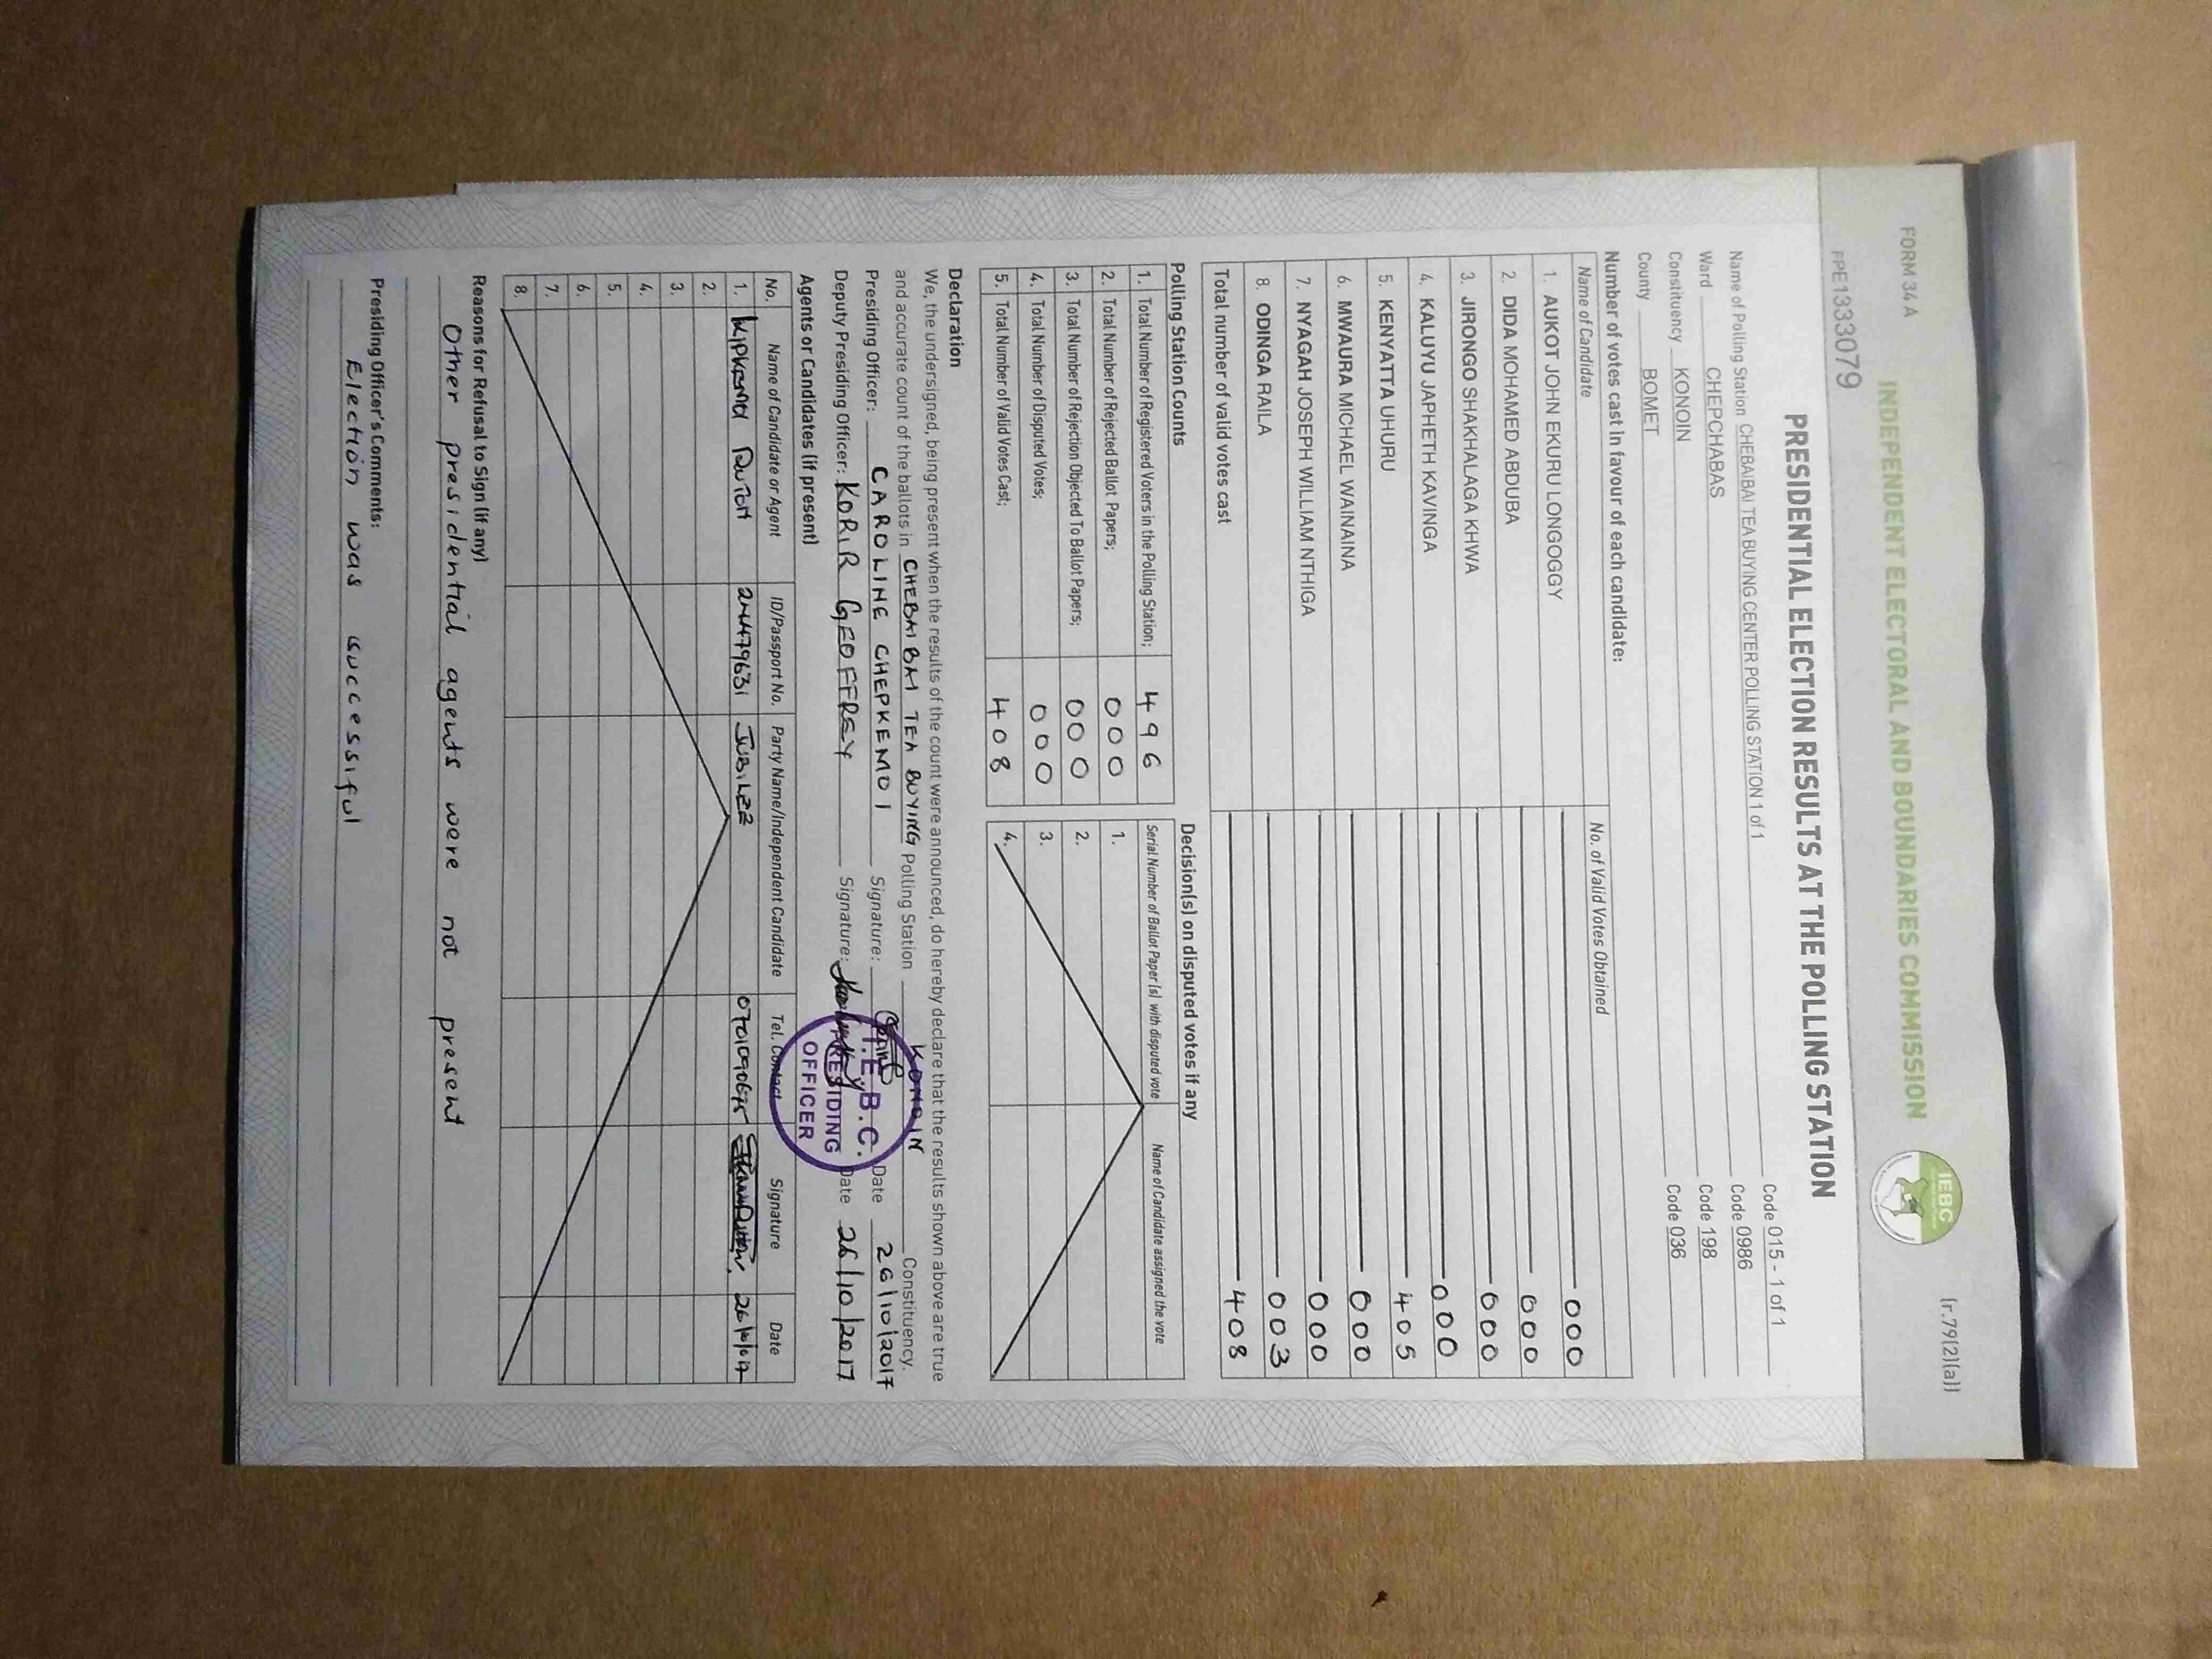 FORM 34 A
(r.79(2)(a))
INDEPENDENT ELECTORAL AND BOUNDARIES COMMISSION
IEBC
PPE1333079
PRESIDENTIAL ELECTION RESULTS AT THE POLLING STATION
Name of Polling Station CHEBAIBAI TEA BUYING CENTER POLLING STATION 1 of 1 Code 015 - 1 of 1
Ward CHEPCHABAS Code 0986
Constituency KONOIN Code 198
County BOMET Code 036
Number of votes cast in favour of each candidate:
Name of Candidate No. of Valid Votes Obtained
1. AUKOT JOHN EKURU LONGOGGY 000
2. DIDA MOHAMED ABDUBA 000
3. JIRONGO SHAKHALAGA KHWA 000
4. KALUYU JAPHETH KAVINGA 000
5. KENYATTA UHURU 405
6. MWAURA MICHAEL WAINAINA 000
7. NYAGAH JOSEPH WILLIAM NTHIGA 000
8. ODINGA RAILA 003
Total number of valid votes cast 408
Polling Station Counts
1. Total Number of Registered Voters in the Polling Station; 496
2. Total Number of Rejected Ballot Papers; 000
3. Total Number of Rejection Objected To Ballot Papers; 000
4. Total Number of Disputed Votes; 000
5. Total Number of Valid Votes Cast; 408
Decision(s) on disputed votes if any
Serial Number of Ballot Paper (s) with disputed vote Name of Candidate assigned the vote
1.
2.
3.
4.
Declaration
We, the undersigned, being present when the results of the count were announced, do hereby declare that the results shown above are true
and accurate count of the ballots in CHEBAIBAI TEA BUYING Polling Station KONOIN Constituency.
Presiding Officer: CAROLINE CHEPKEMOI Signature: Date 26/10/2017
Deputy Presiding Officer: KORIR GEOFFREY Signature: Date 26/10/2017
I.E.B.C.
PRESIDING
OFFICER
Agents or Candidates (if present)
No. Name of Candidate or Agent ID/Passport No. Party Name/Independent Candidate Tel. Contact Signature Date
1. 24479631 JUBILEE
2.
3.
4.
5.
6.
7.
8.
Reasons for Refusal to Sign (if any)
Other presidential agents were not present
Presiding Officer's Comments:
Election was successiful